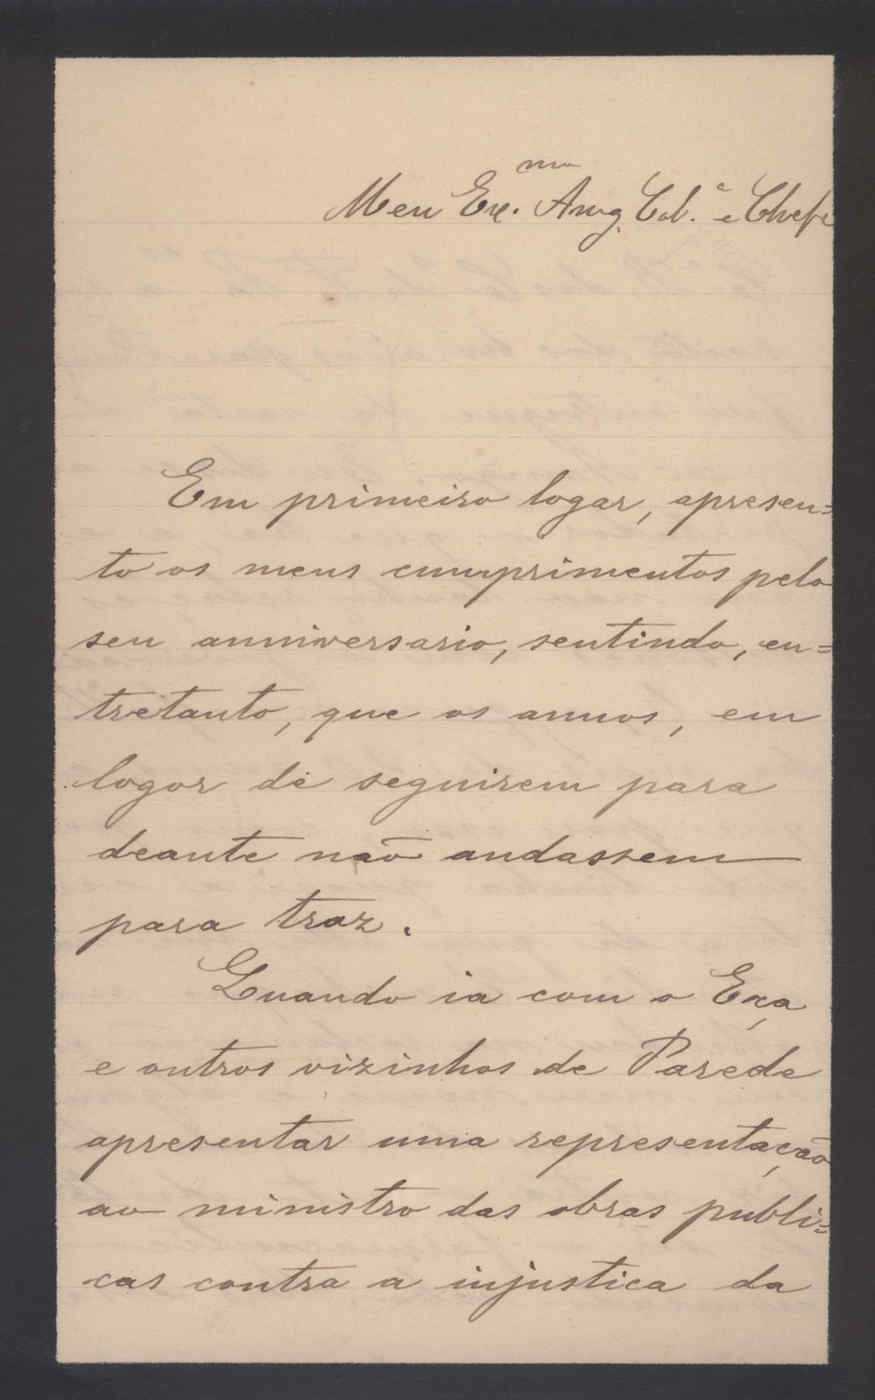 Meu Ex.mo Amg. Col.a e Chefe
Em primeiro logar, apresen=
to os meus cumprimentos pelo
seu anniversario, sentindo, en=
tretanto, que os annos, em
logar de seguirem para
deante não andassem
para traz.
Quando ia com o Eça
e outros vizinhos de Parede
apresentar uma representação
ao ministro das obras publi=
cas contra a injustica da